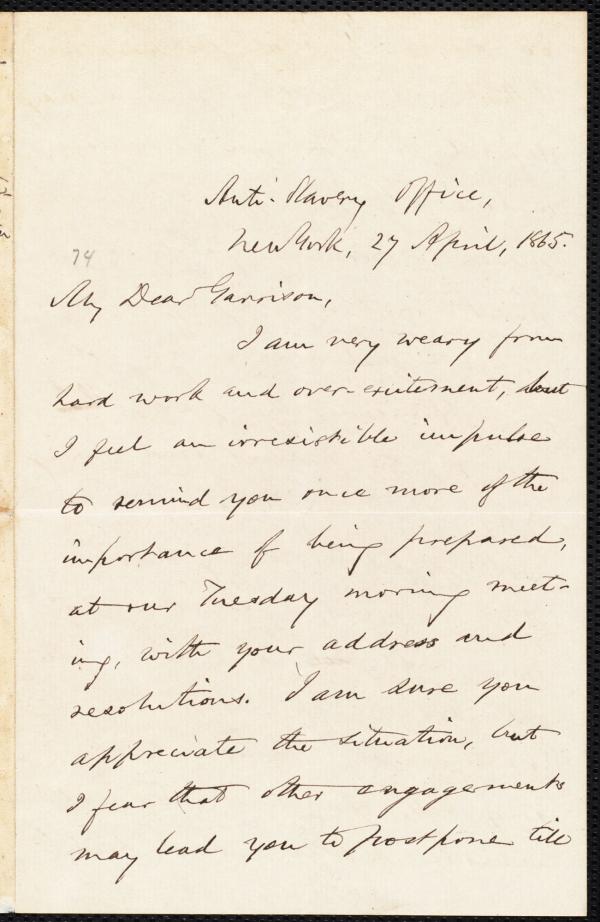 Anti-Slavery Office,
New York, 27 April, 1865.
74
My Dear Garrison,
I am very weary from
hard work and over-excitement, but
I feel an irresistible impulse
to remind you once more of the
importance of being prepared,
at our Tuesday morning meet-
ing, with your address and
resolutions. I am sure you
appreciate the situation, but
I fear that other engagements
may lead you to postpone till